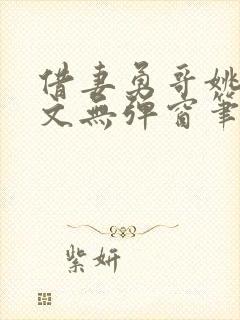 借妻勇哥姚
文無彈窗筆
紫妍